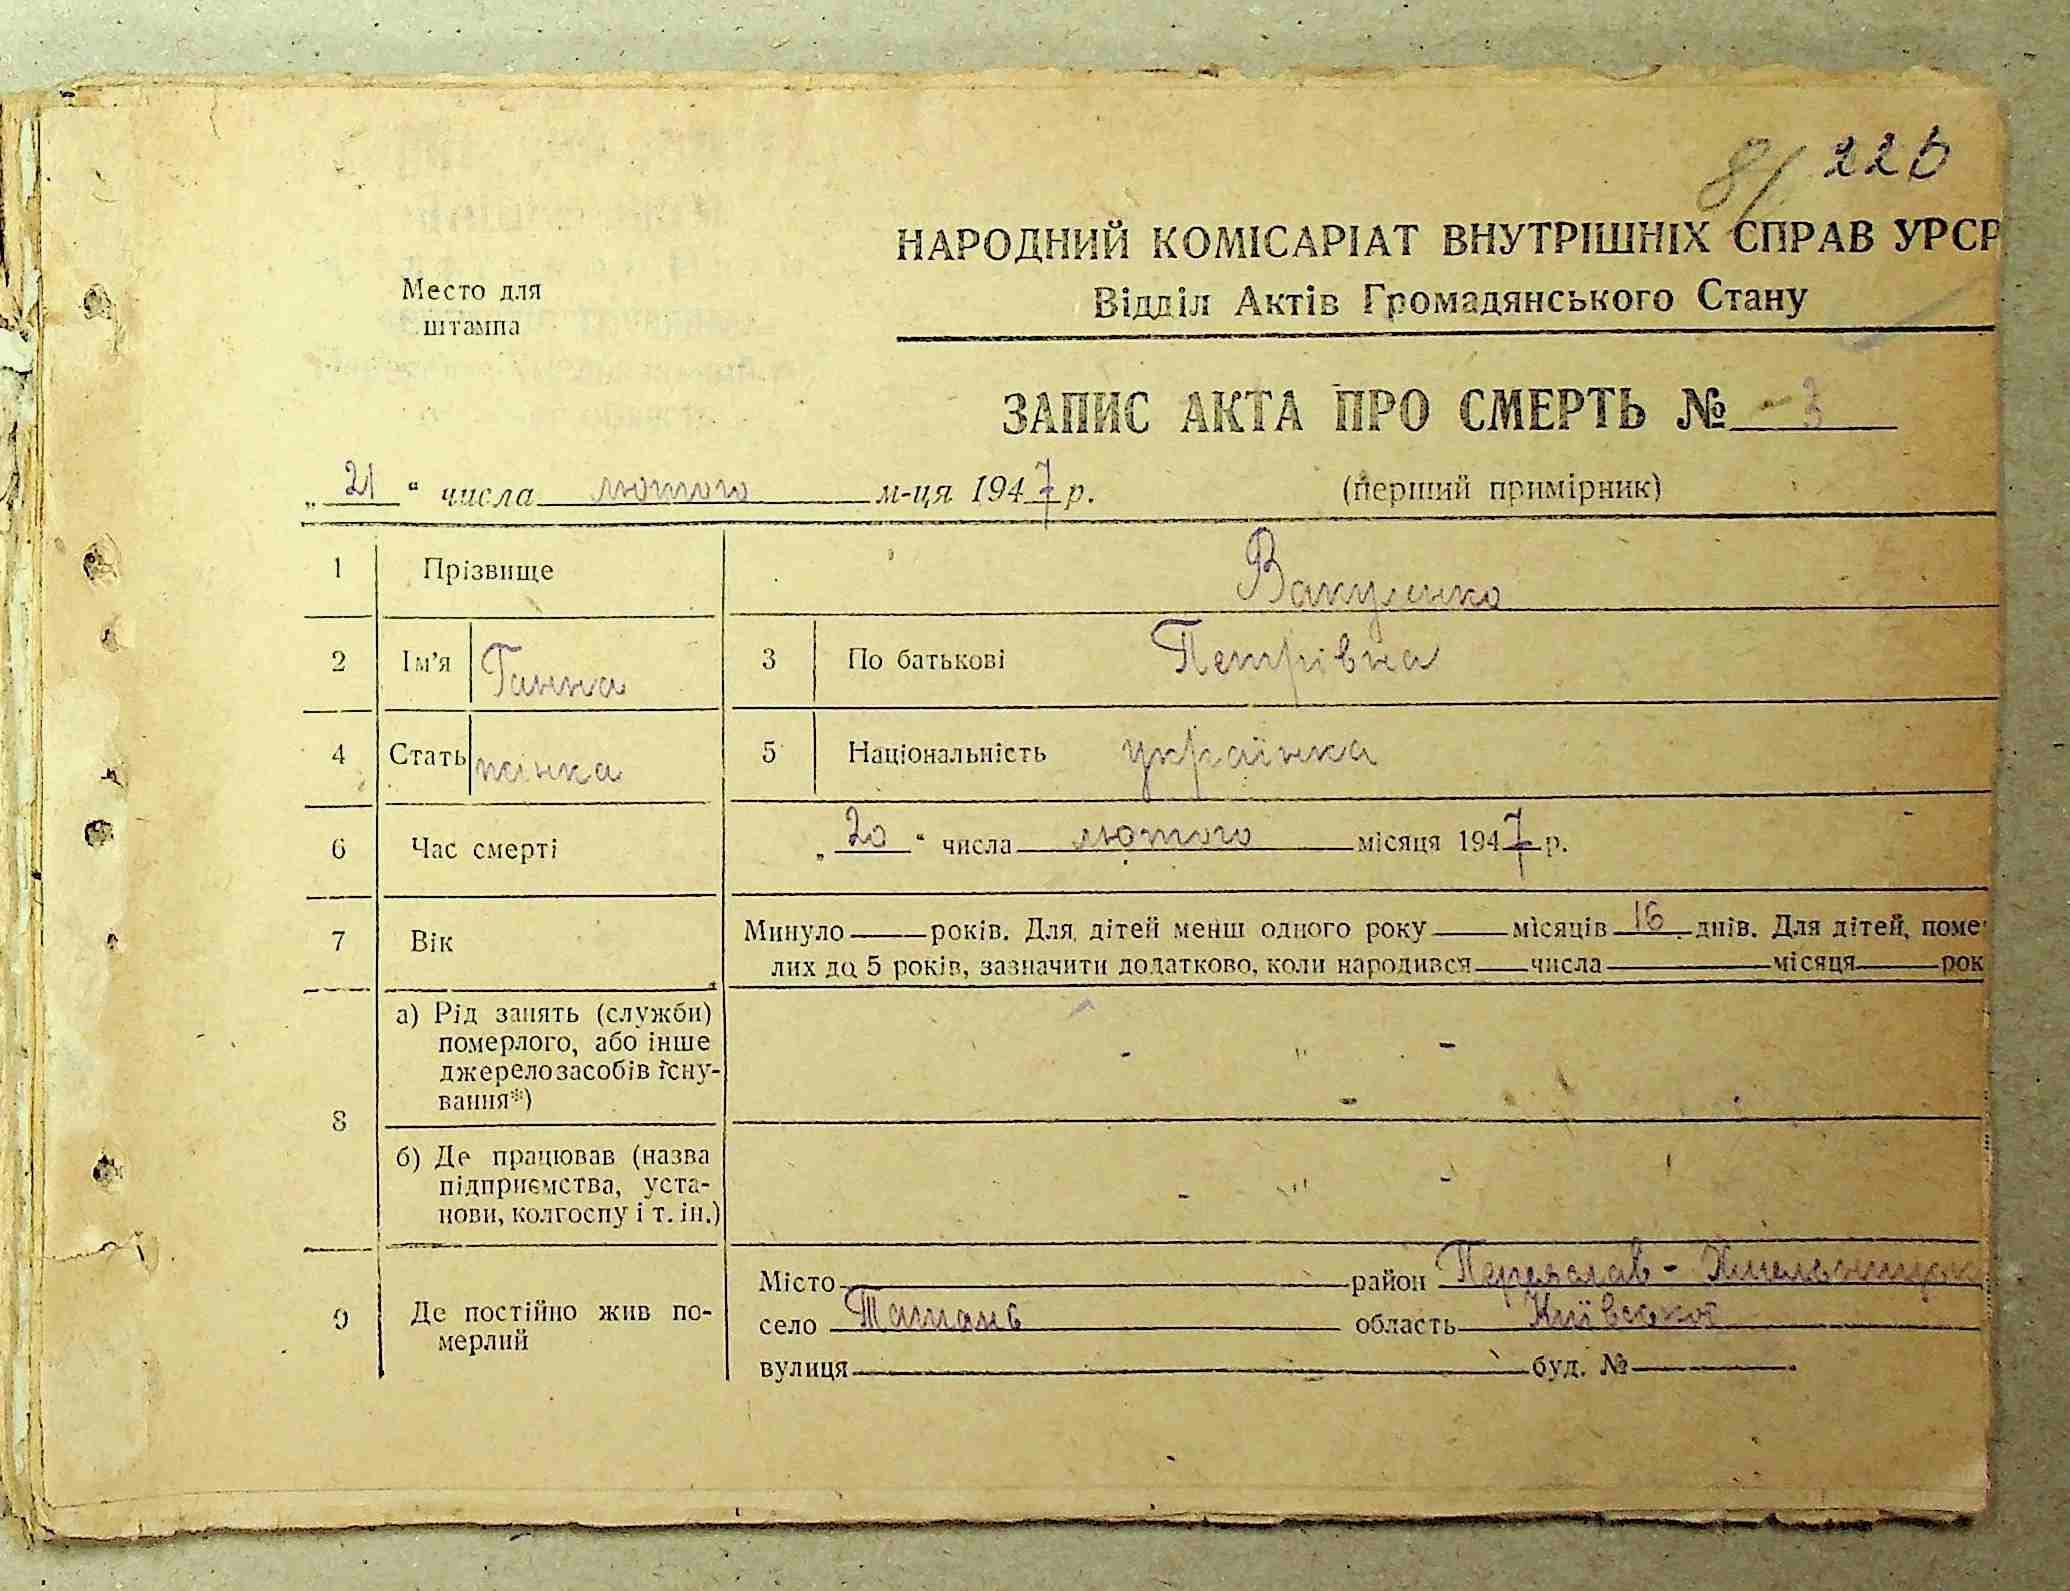 8/ 226
Место для
штампа
НАРОДНИЙ КОМІСАРІАТ ВНУТРІШНІХ СПРАВ УРСР
Відділ Актів Громадянського Стану
ЗАПИС АКТА ПРО СМЕРТЬ № 3
„21“ числа лютого м-ця 1947 р. (перший примірник)
1 Прізвище Вакуленко
2 Ім'я Ганна 3 По батькові Петрівна
4 Стать жінка 5 Національність українка
6 Час смерті „20“ числа лютого місяця 1947 р.
7 Вік Минуло — років. Для дітей менш одного року — місяців 16 днів. Для дітей, поме
лих до 5 років, зазначити додатково, коли народився — числа — місяця — рок
8 а) Рід занять (служби)
померлого, або інше
джерело засобів існу-
вання*)
- " -
б) Де працював (назва
підприємства, уста-
нови, колгоспу і т. ін.)
- " -
9 Де постійно жив по-
мерлий
Місто — район Переяслав-Хмельницьк
село Ташань область Київської
вулиця — буд. № —